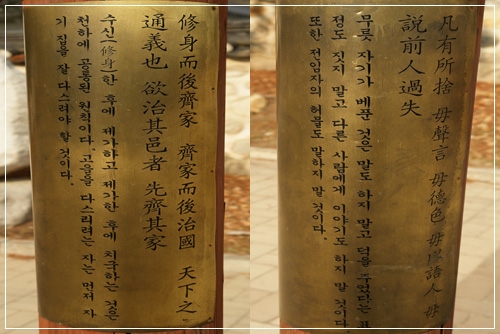 修身而後齊家 齊家而後治國 天下之
通義也 欲治其邑者 先齊其家
수신(修身)한 후에 제가하고 제가한 후에 치국하는 것은
천하에 공통된 원칙이다. 고을을 다스리려는 자는 먼저 자
기 집을 잘 다스려야 할 것이다.
凡有所捨 毋聲言 毋德色 毋以語人 毋
說前人過失
무릇 자기가 베푼 것은 말도 하지 말고 덕을 주었다는 표
정도 짓지 말고 다른 사람에게 이야기도 하지 말 것이다
또한 전임자의 허물도 말하지 말 것이다.